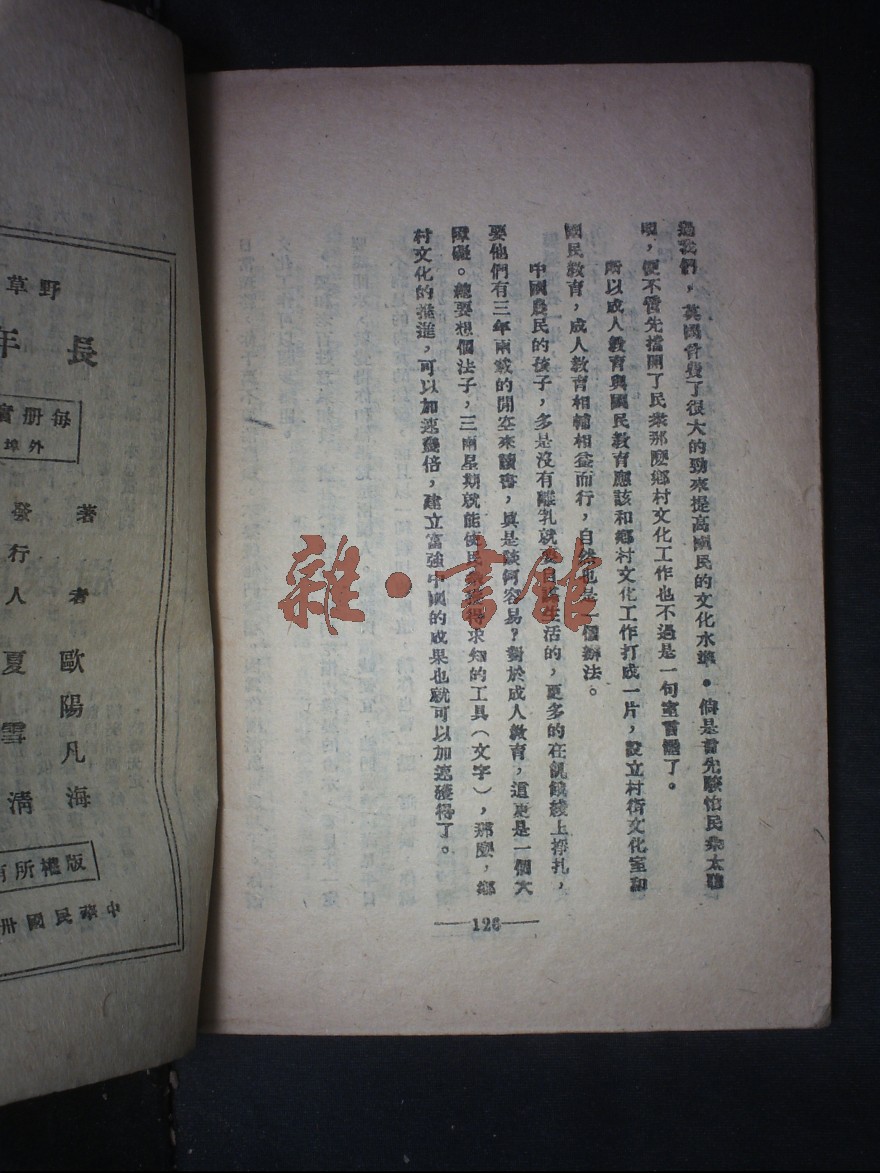 過我們，英國曾費了很大的勁來提高國民的文化水準。倘是首先駭怕民衆太聰
明，便不啻先擋開了民衆那麽鄉村文化工作也不過是一句空話罷了。
所以成人教育與國民教育應該和鄉村文化工作打成一片，設立村街文化室和
國民教育，成人教育相輔相益而行，自然也是一個辦法。
中國農民的孩子，多是沒有離乳就要自謀生活的，更多的在飢餓綫上掙扎，
要他們有三年兩載的閒空來讀書，眞是談何容易？對於成人教育，這更是一個大
障礙。總要想個法子，三兩星期就能使民衆獲得求知的工具（文字），那麽，鄉
村文化的推進，可以加速幾倍，建立富強中國的成果也就可以加速獲得了。
—126—
雜·書館
野草
長年
每册實
外埠
著者 歐陽凡海
發行人 夏雪清
版權所有
中華民國卅